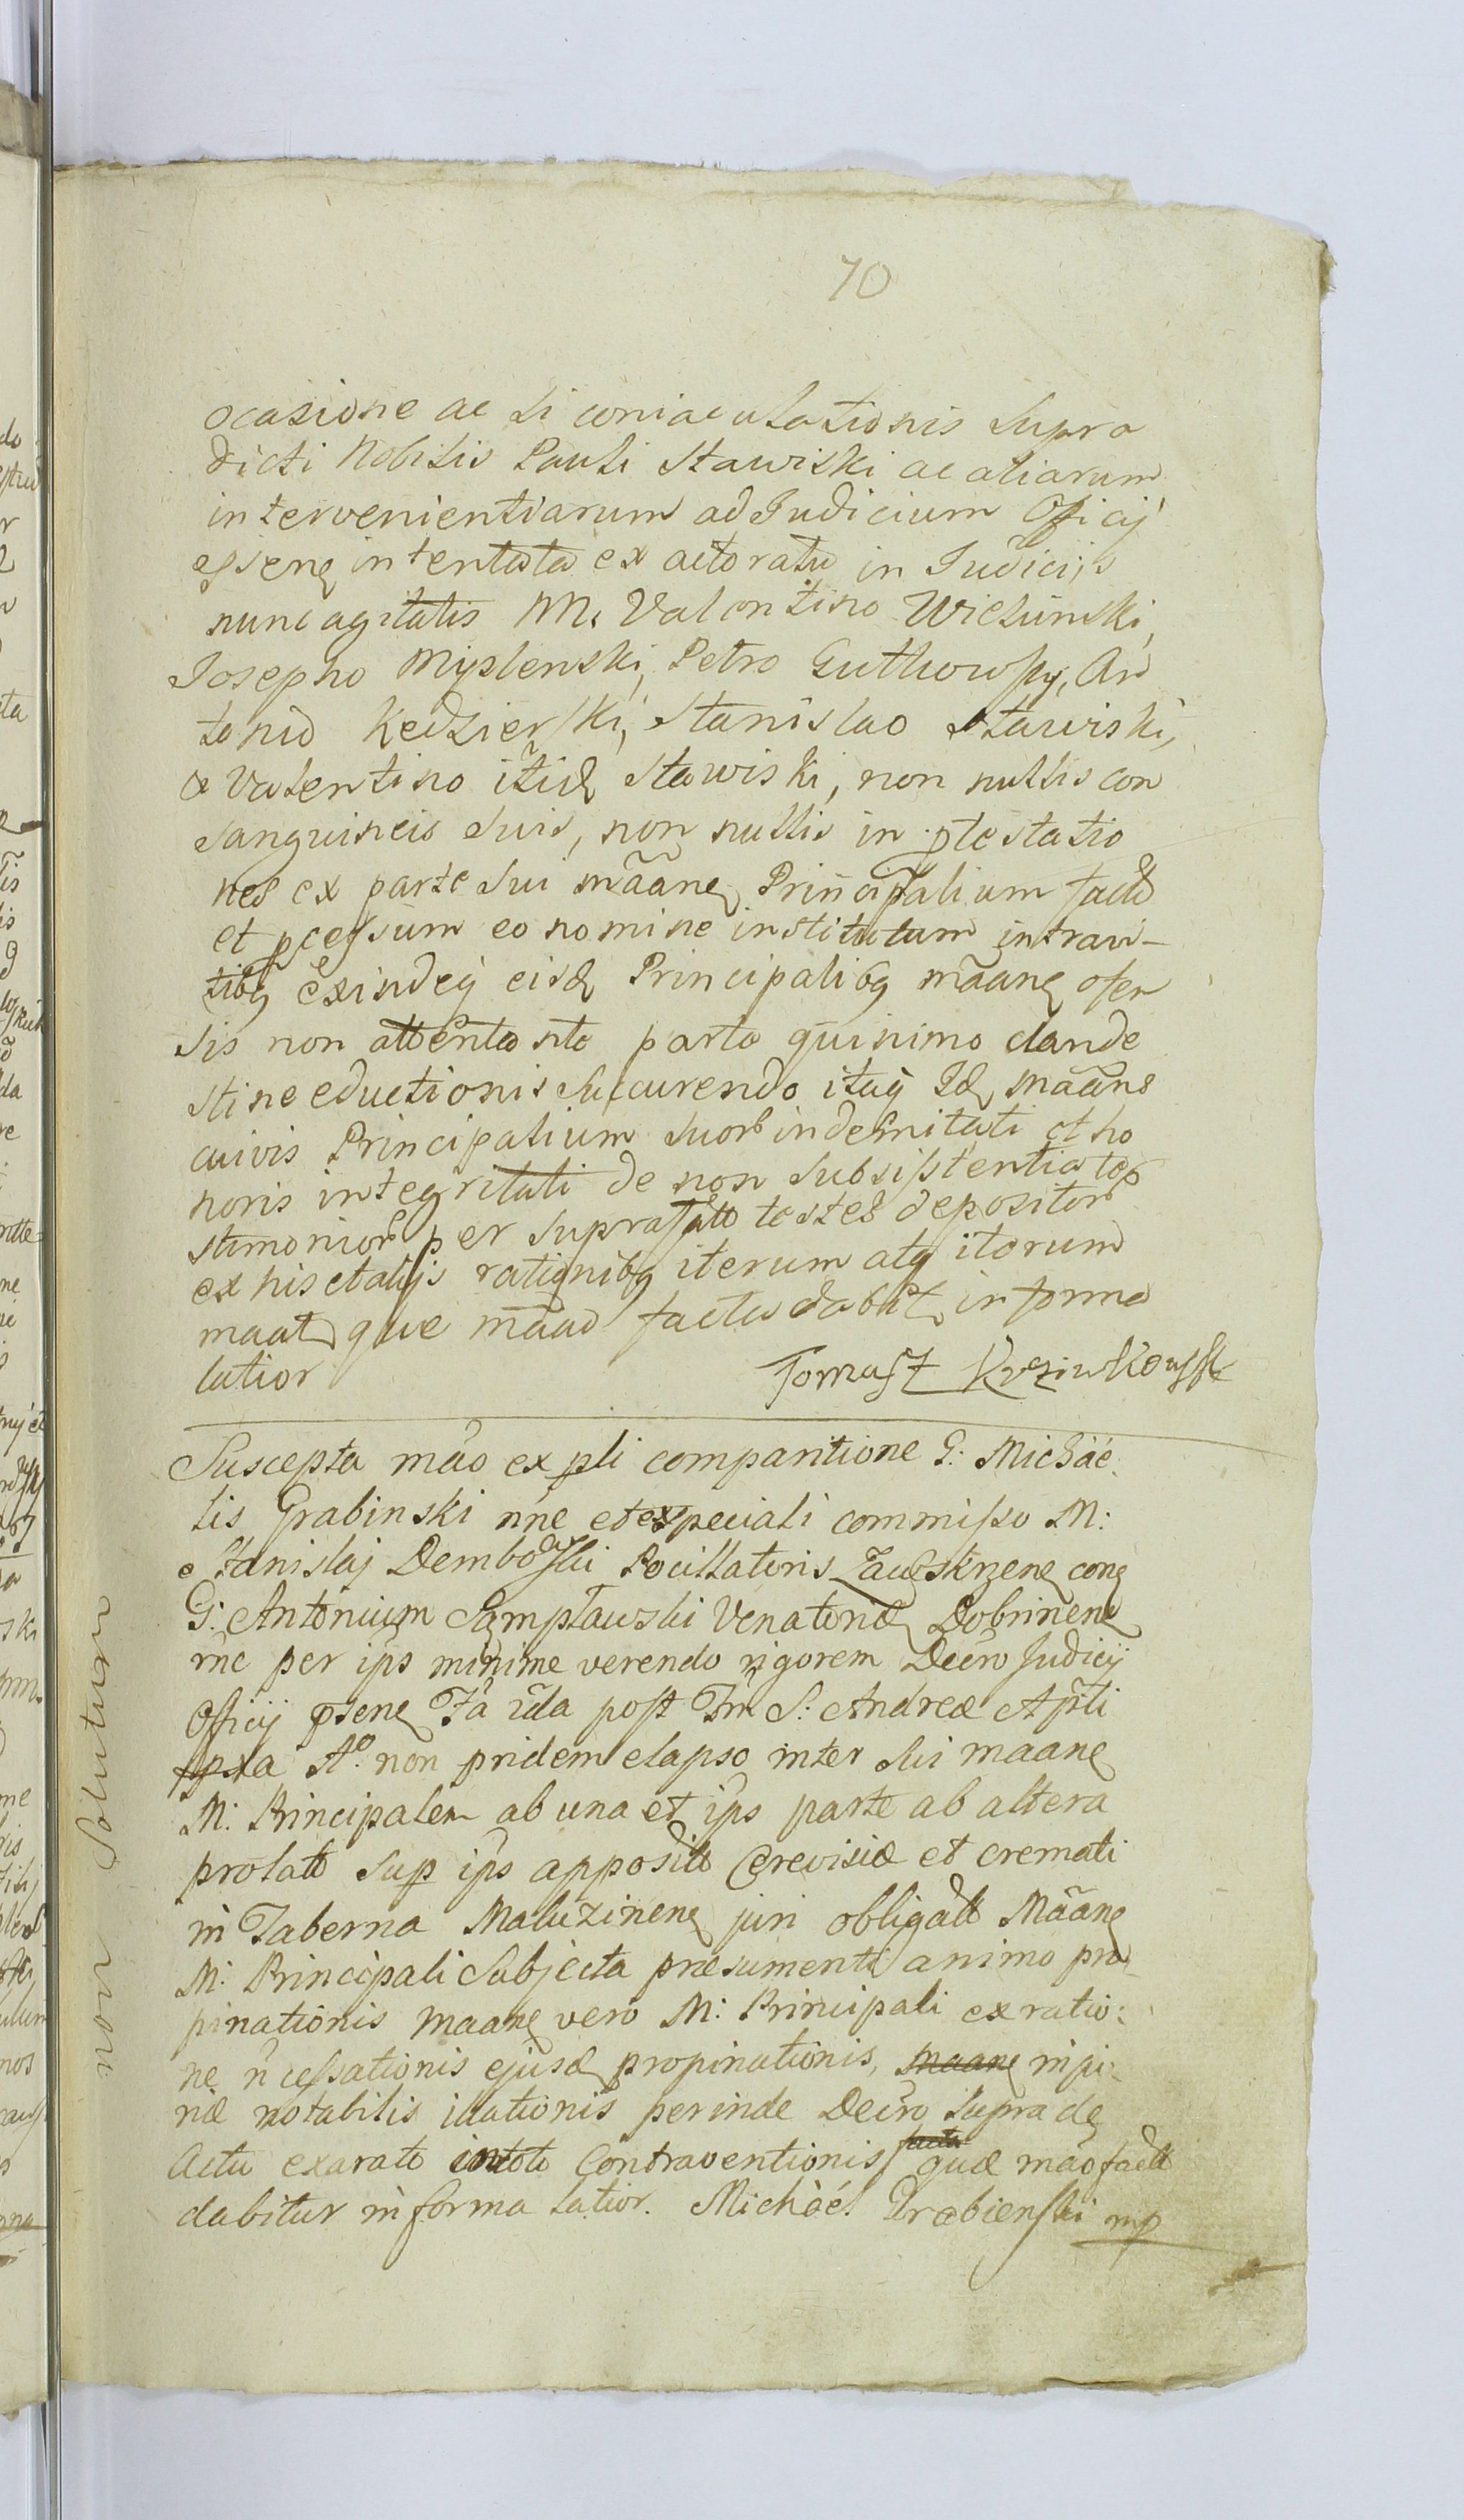 70
ocasione ac si coniaculationis supra
dicti Nobilis Pauli Stawiski ac aliarum
intervenientiarum ad Judicium Officij
intentata ex actoratu in Judicijs
nunc agitatis M. Valentino Wiclinski,
Josepho Myslenski, Petro Gutkowsky, An
tonio Kedzierski, Stanislao Stawiski,
& Valentino itid Stawiski, non nullis con
sanguineis suis, non nullis in ptestatio
nes ex parte sui mãane Principalium factã
et pcessum eo nomine institutum intrav-
tibq exindeq eisd Principalibq mãane ofen
sis non attenta nte parta quinimo clande
stine eductionis succurendo itaq Id mãane
cuivis Principalium suor indemnitati et ho
noris integritati de non subsistentia te
stimonior per suprafatt testes depositor
ex his et alijs rationibq iterum atq iterum
maat que mãao facta dabit in forma
latior Tomasz
Suscepta mão ex pli comparitione G: Michàé.
lis Grabinski nne et expeciali commisso M:
Stanislaj Dembowski Pocillatoris Zauskrzene cone
G: Antonium Sampławski Venatorid Dobrinene
mc per ips minime verendo rigorem Decro Judicij
Officij psene Fã 2da post Fm S: Andreæ Apłi
pxa Aº non pridem elapso inter sui maane
M: Principalem ab una et ips parte ab altera
prolato sup ips apposita Cerevisiæ et cremati
in Taberna Maluzinene juri obligatt Mãane
M: Principali subjecta præsumenti animo pro
pinationis maane vero M: Principali ex ratio:
ne ñ cessationis ejusd propinationis, maane in pi:
niæ notabilis illationis perinde Decro supra de
Actu exarato intoto Contraventionis facta quæ mão factt
dabitur in forma latior. Michàél Grabienski mp
non Solutum